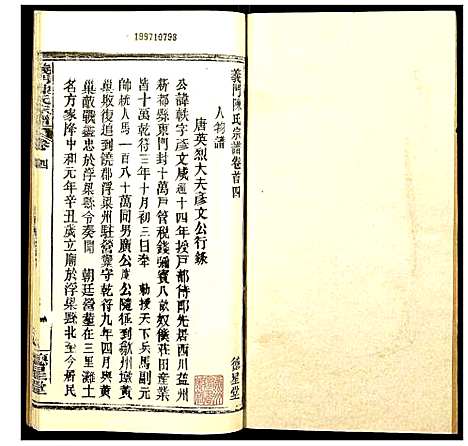 199710798
義門陳氏宗譜卷首四
德星堂
人物譜
唐英烈大夫彥文公行錄
公諱軼字彥文咸通十四年授戶部侍郎先居西川益州
新都縣東門封十萬戶管稅錢彌賓八畝奴僕莊田產業
皆十萬乾符三年十月初三日奉　勅授天下兵馬副元
帥統人馬一百八十萬同男廣公虔公隨征到歙州墩黃
巢敗復追到饒郡浮梁州駐營築守乾符九年四月與黃
巢敵戰盡忠於浮梁縣令奏聞　朝廷營塟在三里灘土
名方家降中和元年辛丑歲立廟於浮梁縣北至今居民